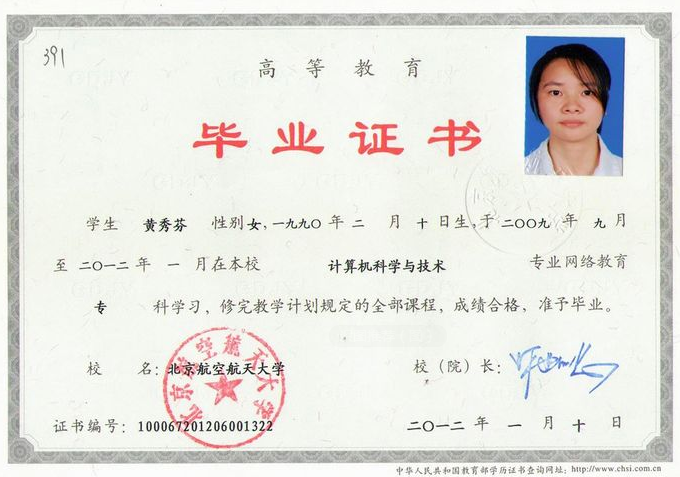 391
高等教育
毕业证书
学生 黄秀芬 性别女,一九九〇年二月十日生,于二〇〇九年九月
至二〇一二年一月在本校 计算机科学与技术 专业网络教育
专 科学习,修完教学计划规定的全部课程,成绩合格,准予毕业。
校 名:北京航空航天大学 校(院)长:
北京航空航天大学
证书编号:100067201206001322 二〇一二年一月十日
中华人民共和国教育部学历证书查询网址:http://www.chsi.com.cn